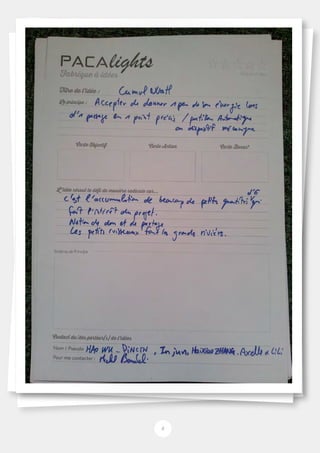 PACAlights
Fabrique à idées
Titre de l'idée : Cumul Watt
Le principe : Accepter de donner 1 peu de son énergie lors
d'1 passage en 1 point précis /
ou dispositif mécanique
Carte Objectif Carte Action Carte Bonus!
L'idée résout le défi de manière radicale car...
C'est l'accumulation de beaucoup de petites quantités qui
fait l'intérêt du projet.
Notion de don et de partage
Les petits ruisseaux font les grandes rivières.
Schéma de Principe
Contact du/des porteur(s) de l'idée
Nom / Pseudo HAO WU - , In jun, HAIXIAO ZHANG. Axelle & LiLi
Pour me contacter :